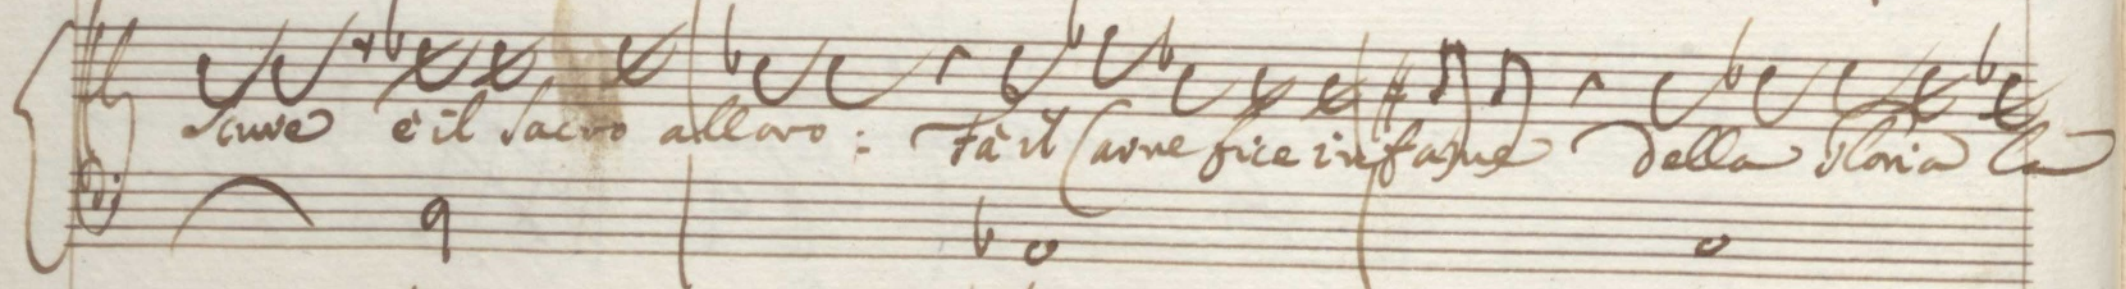 e il sacro alloro: Fà il Carnefice infame della gloria la